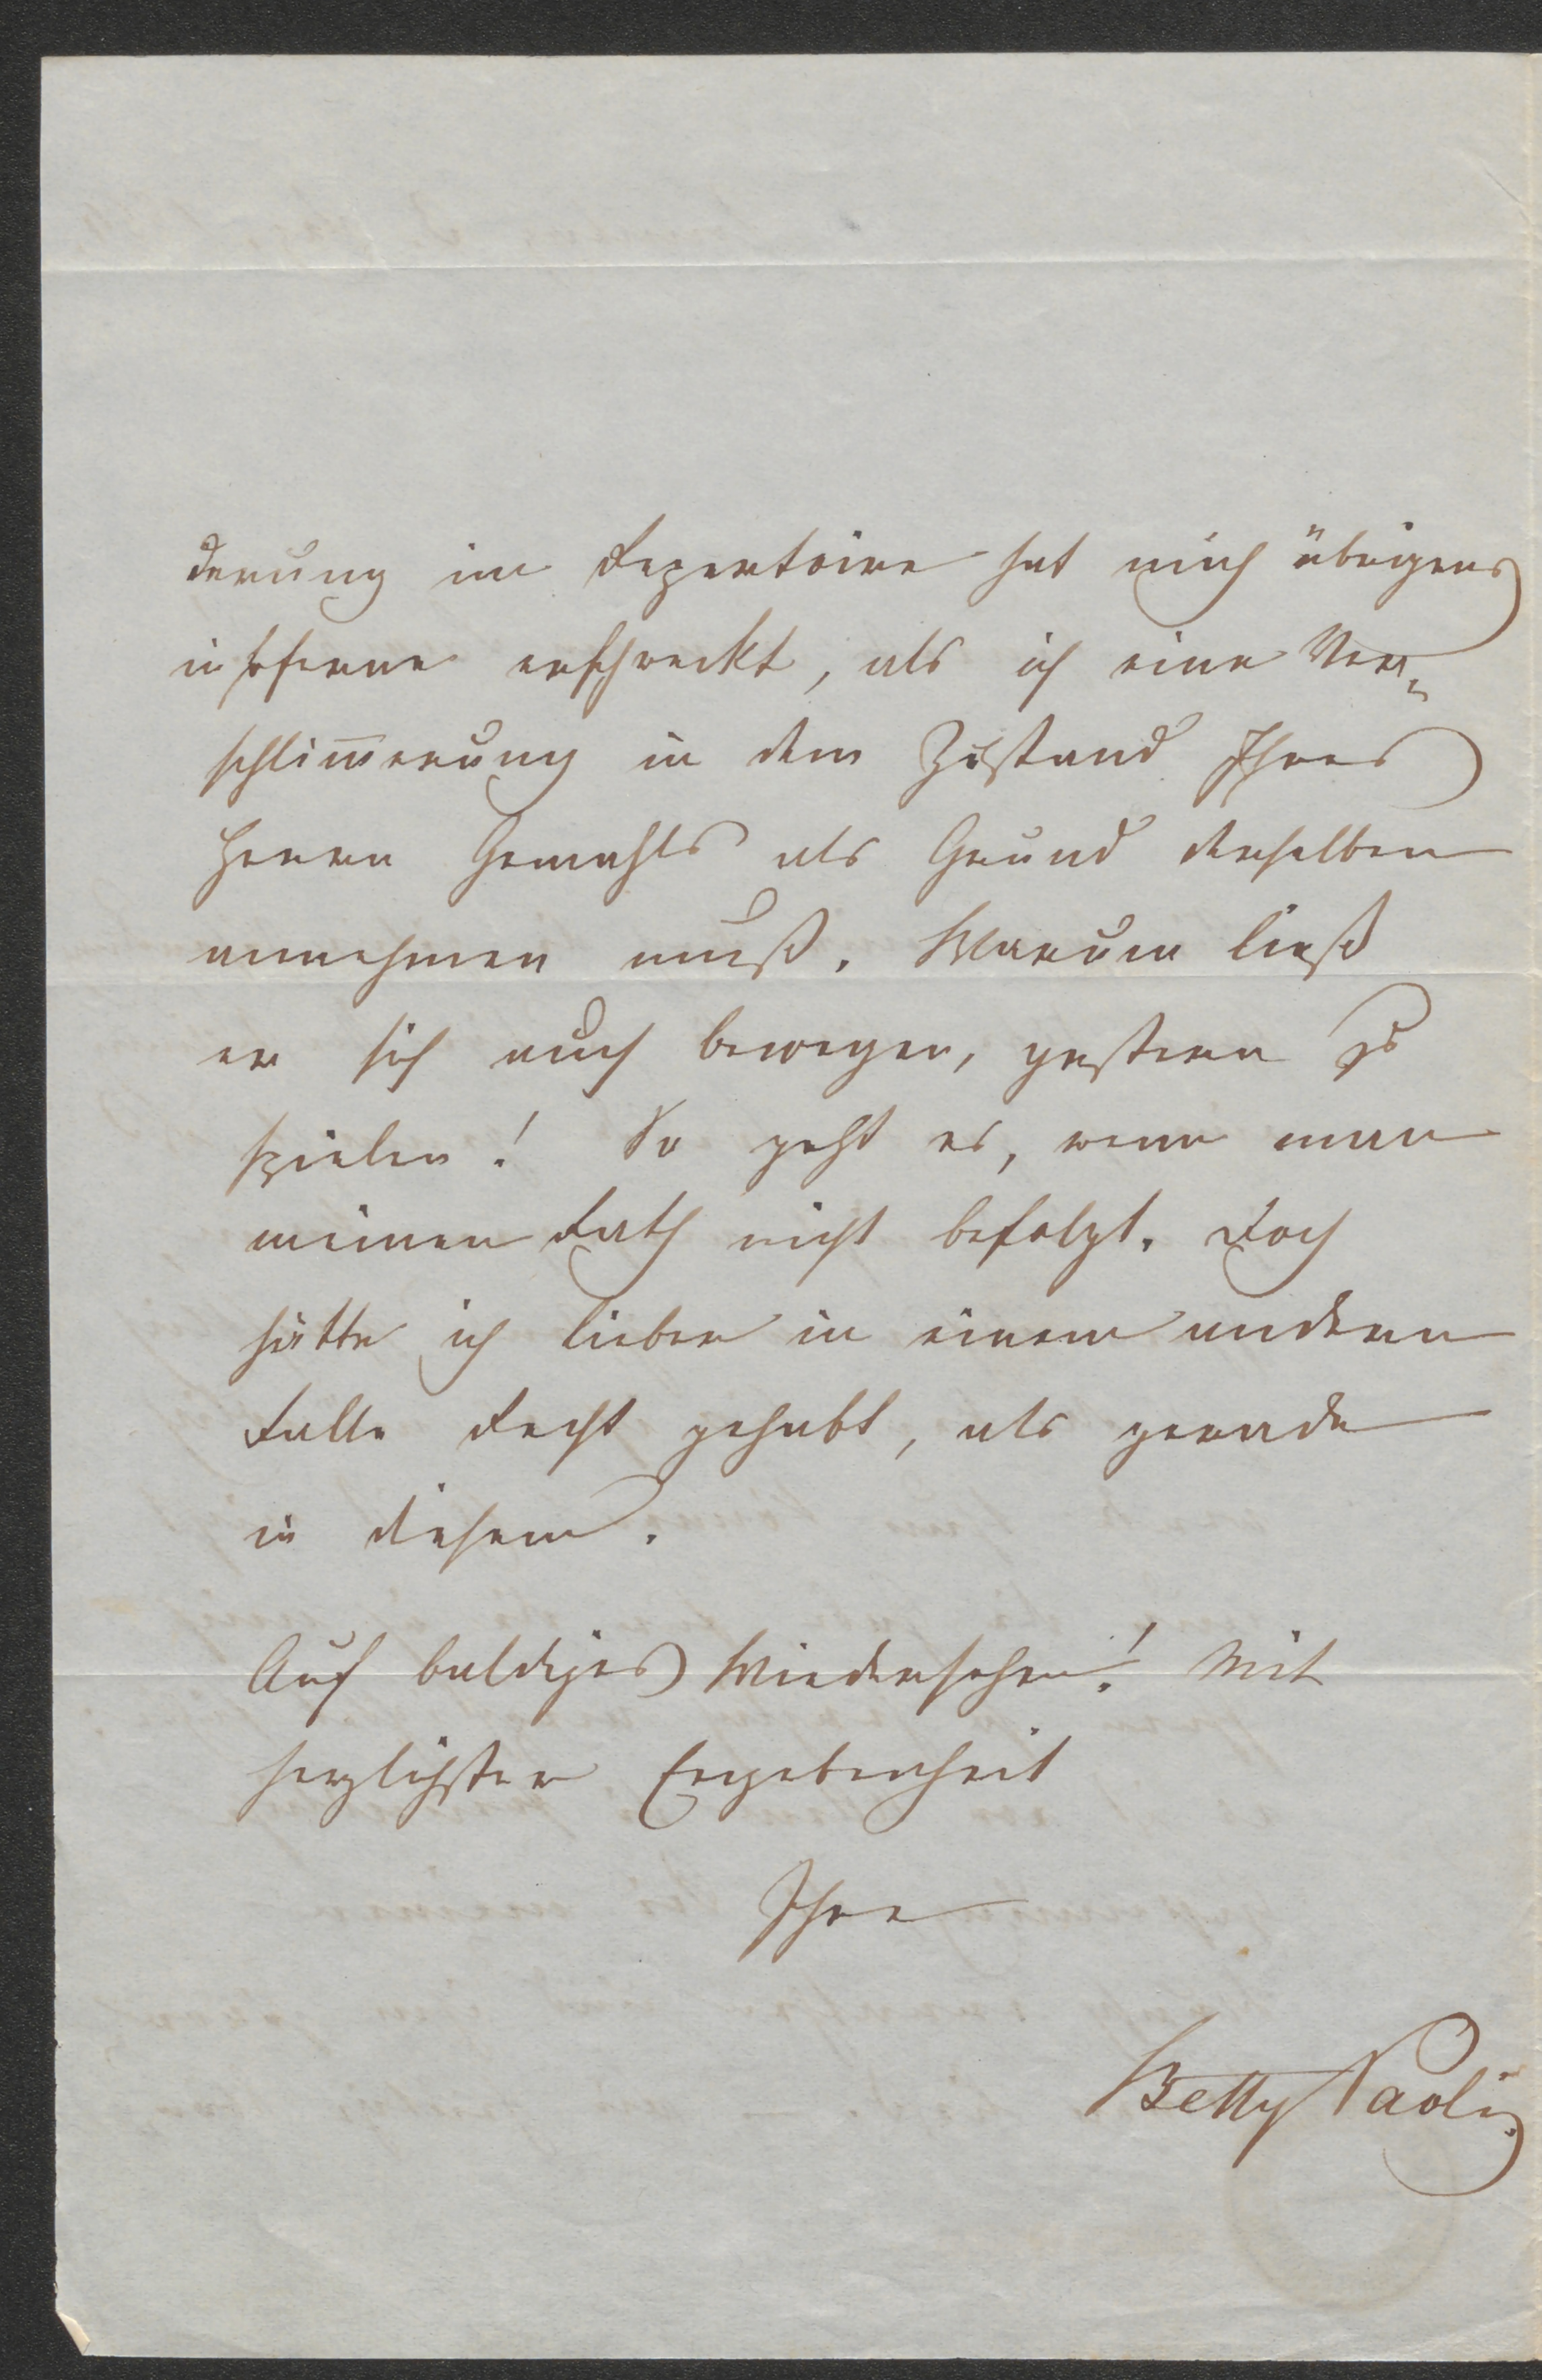 derung im Repertoire hat mich übrigens
insoferne erschreckt, als ich eine Ver-
schlim̅erung in dem Zustand Ihres
Herrn Gemahls als Grund derselben
annehmen muß. Warum ließ
er sich auch bewegen, gestern zu
spielen! So geht es, wenn man
meinen Rath nicht befolgt. Doch
hätte ich lieber in einem andern
Falle Recht gehabt, als gerade
in diesem.
Auf baldiges Wiedersehen! Mit
herzlichster Ergebenheit
Ihre
Betty Paoli